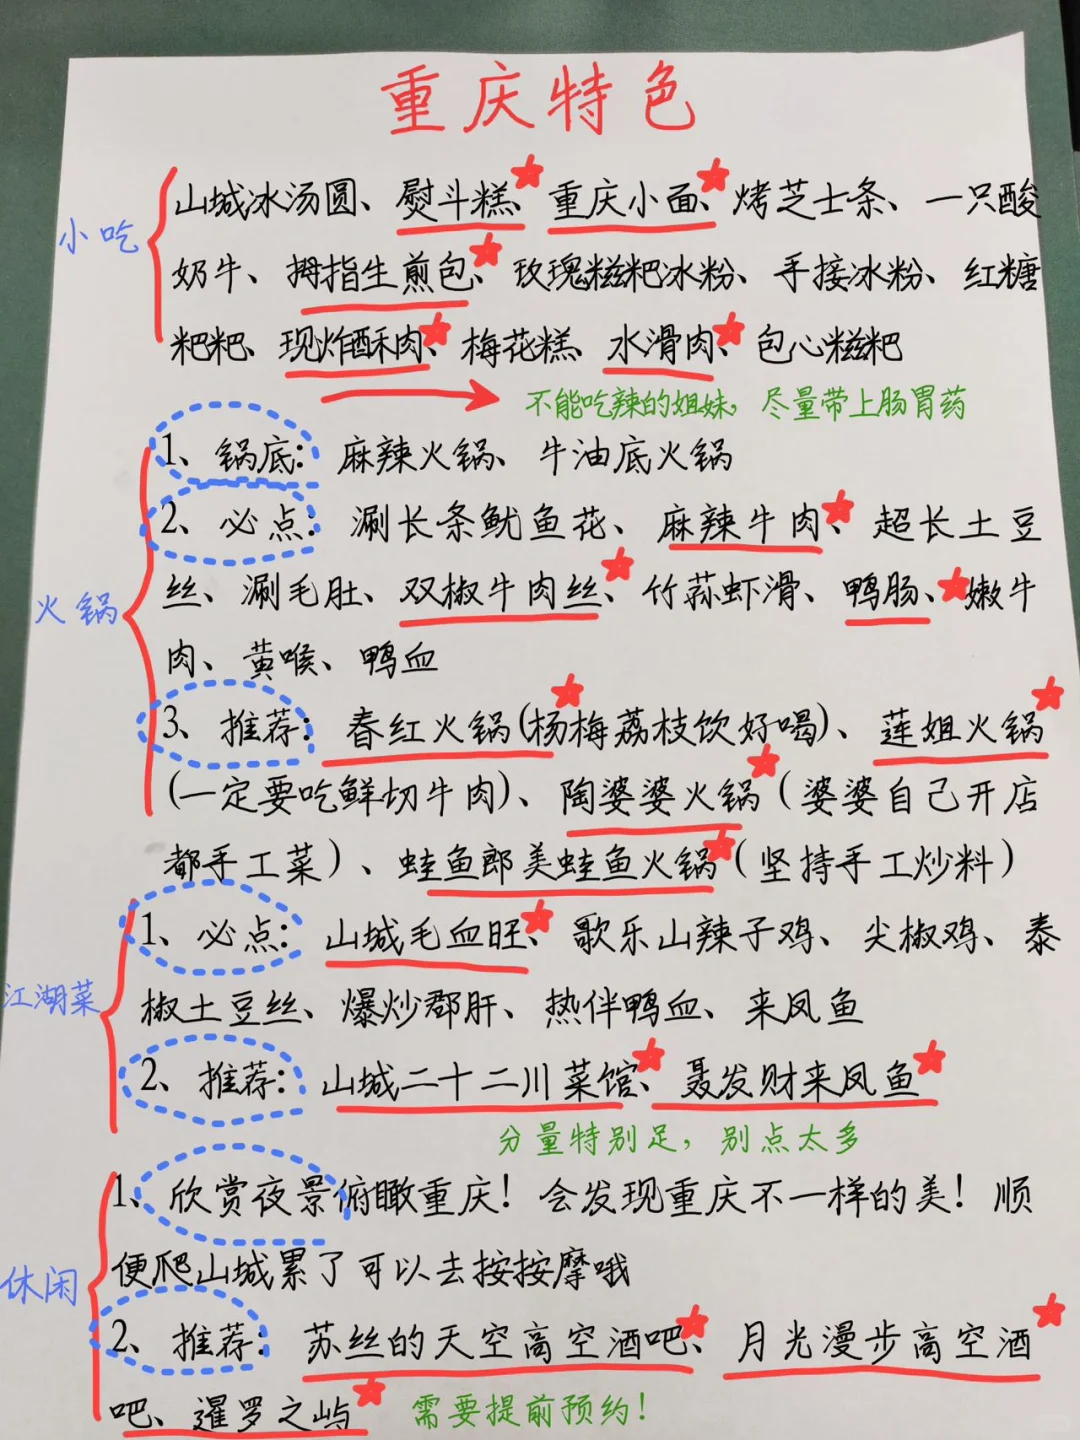 重庆特色
小吃
山城冰汤圆、熨斗糕、重庆小面、烤芝士条、一只酸
奶牛、拇指生煎包、玫瑰糍粑冰粉、手接冰粉、红糖
粑粑、现炸酥肉、梅花糕、水滑肉、包心糍粑
不能吃辣的姐妹，尽量带上肠胃药
火锅
1、锅底：麻辣火锅、牛油底火锅
2、必点：涮长条鱿鱼花、麻辣牛肉、超长土豆
丝、涮毛肚、双椒牛肉丝、竹荪虾滑、鸭肠、嫩牛
肉、黄喉、鸭血
3、推荐：春红火锅(杨梅荔枝饮好喝)、莲姐火锅
(一定要吃鲜切牛肉)、陶婆婆火锅（婆婆自己开店
都手工菜）、蛙鱼郎美蛙鱼火锅（坚持手工炒料）
江湖菜
1、必点：山城毛血旺、歌乐山辣子鸡、尖椒鸡、泰
椒土豆丝、爆炒郡肝、热伴鸭血、来凤鱼
2、推荐：山城二十二川菜馆、聂发财来凤鱼
分量特别足，别点太多
休闲
1、欣赏夜景俯瞰重庆！会发现重庆不一样的美！顺
便爬山城累了可以去按按摩哦
2、推荐：苏丝的天空高空酒吧、月光漫步高空酒
吧、暹罗之屿
需要提前预约！